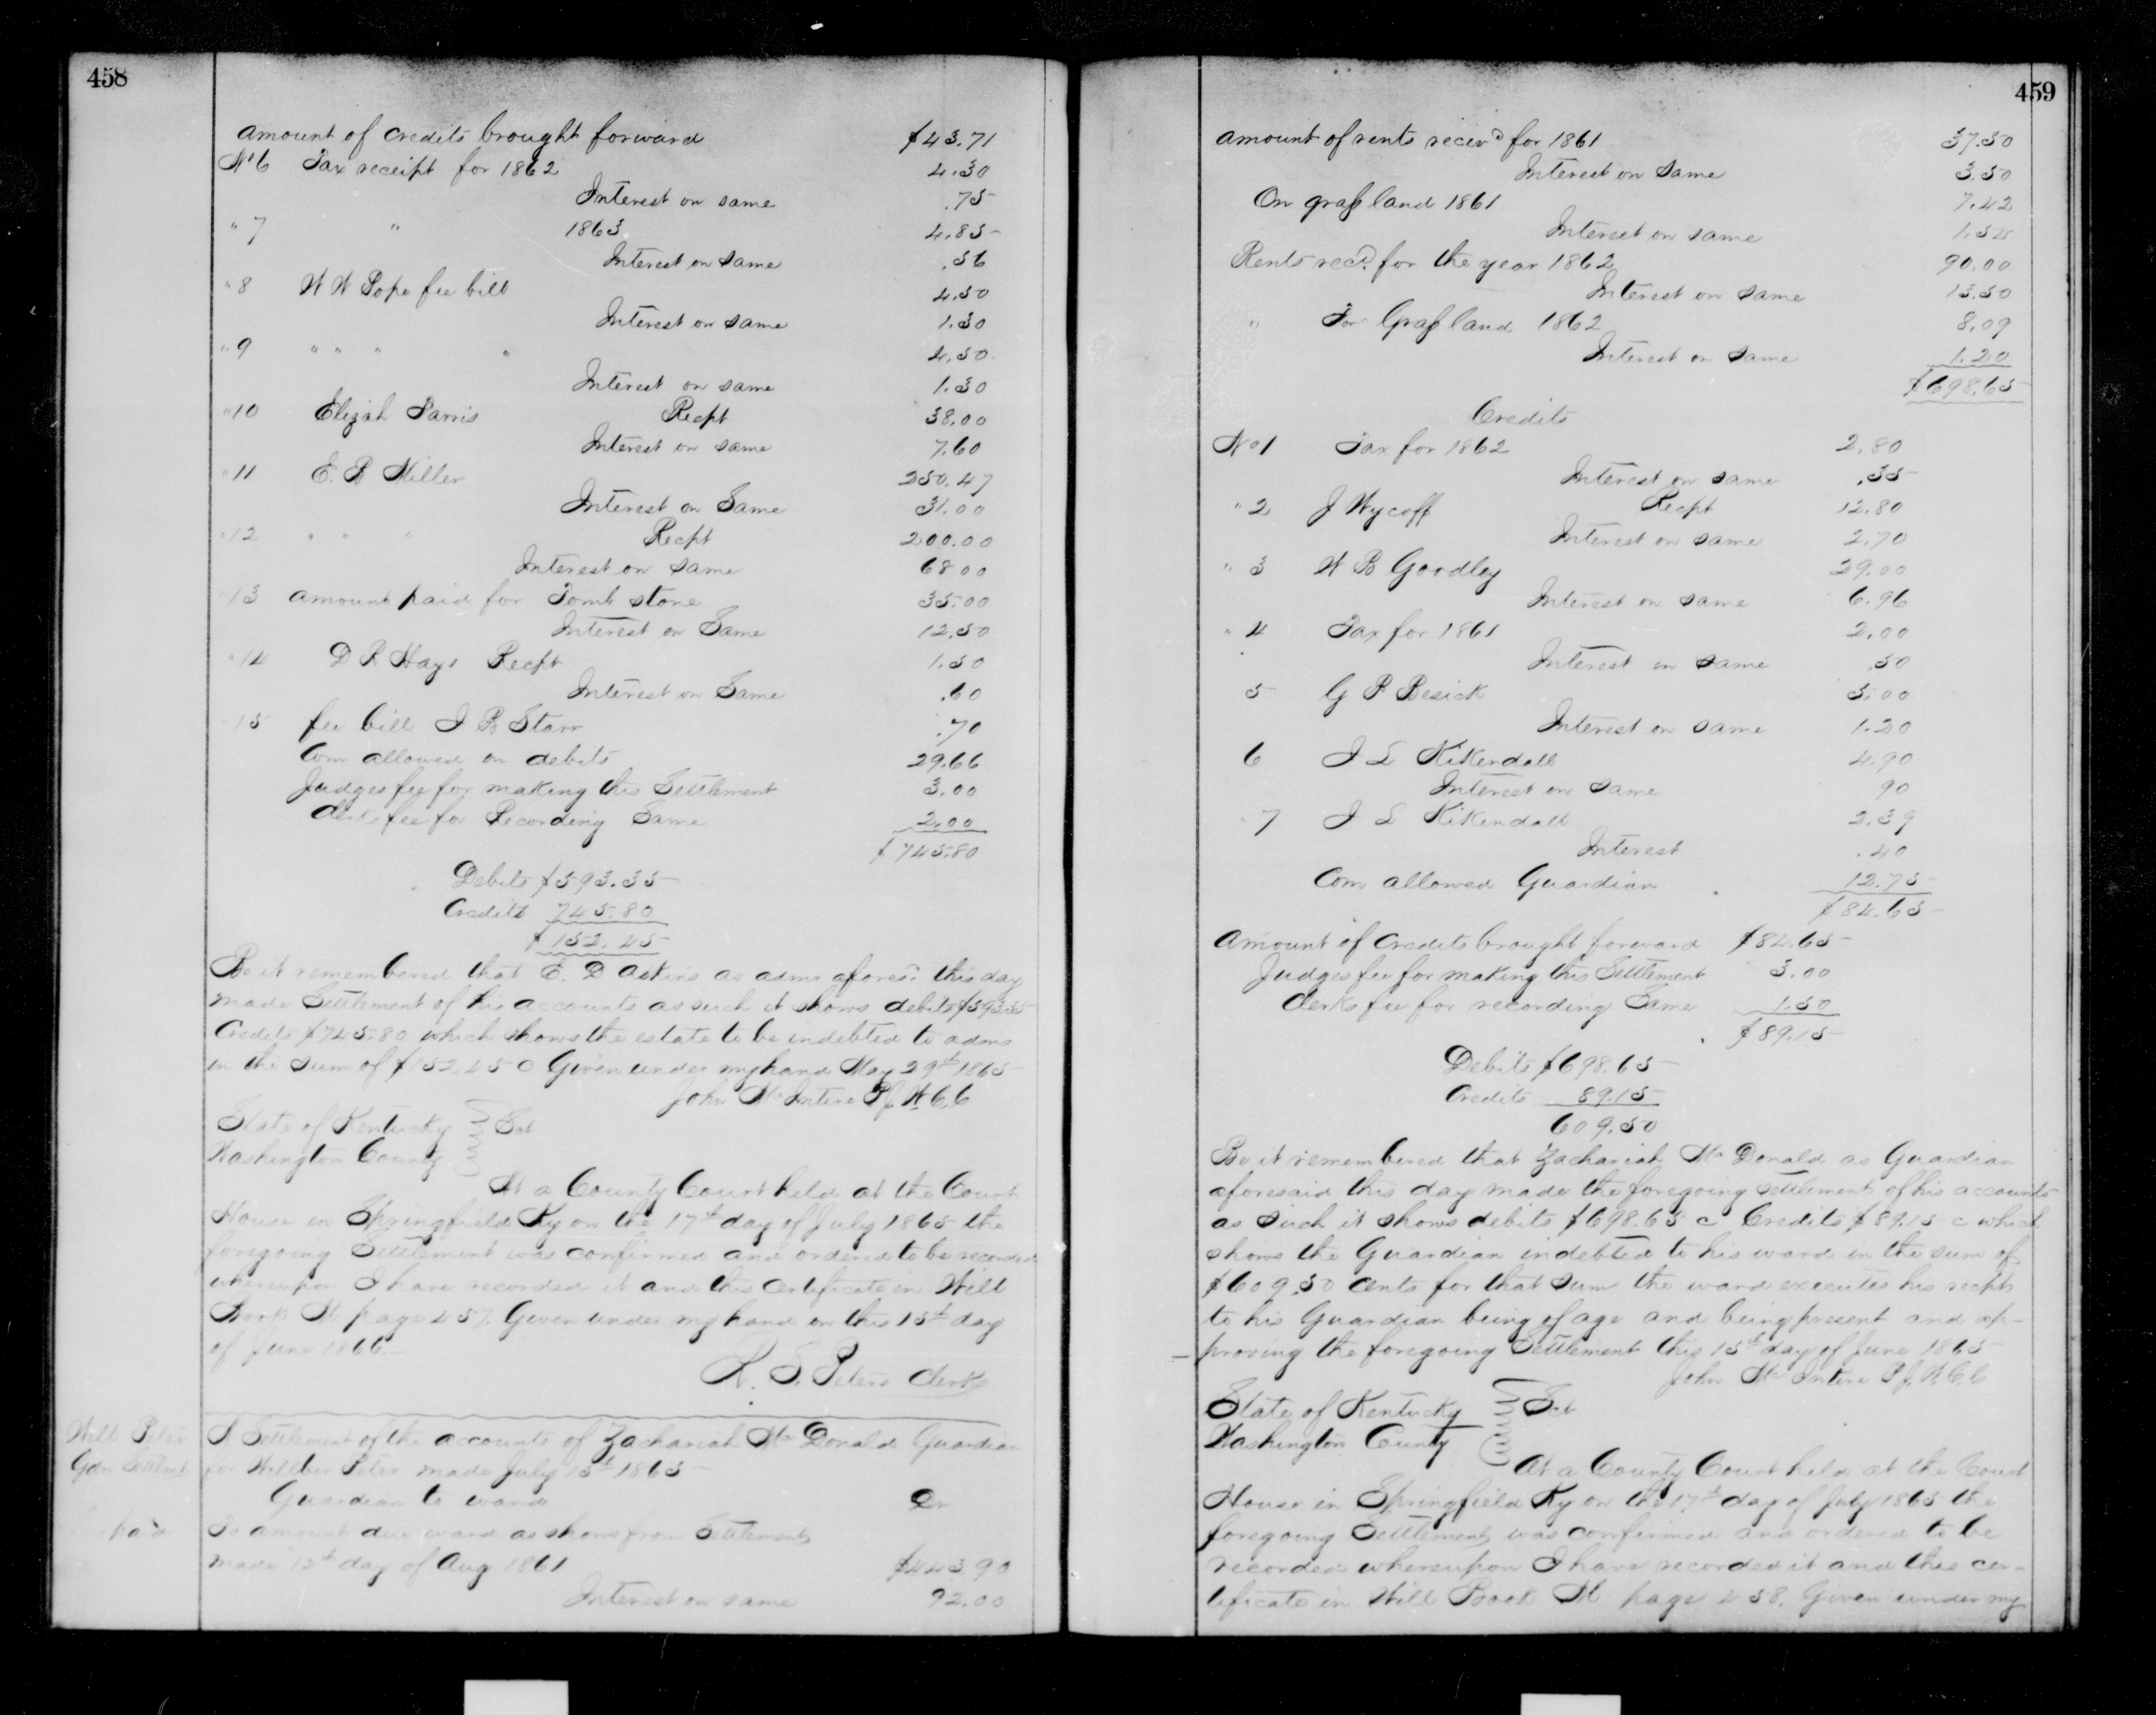 458
Amount of Credits brought forward $43.71
No 6 Tax receipt for 1862 4.30
Interest on same .75
" 7 " 1863 4.85
Interest on same .56
" 8 W W Pope fee bill 4.50
Interest on same 1.30
" 9 " " " " 4.50
Interest on same 1.30
" 10 Elizah Parris Recpt 38.00
Interest on same 7.60
" 11 E. B Miller 250.47
Interest on Same 31.00
" 12 " " " Recpt 200.00
Interest on same 68 00
" 13 Amount paid for Tomb stone 35.00
Interest on Same 12.50
" 14 D R Hays Recpt 1.50
Interest on Same .60
15 fee bill J B Starr .70
Com allowed on debits 29.66
Judges fee for making this Settlement 3.00
Clerks fee for Recording Same 2.00
$745.80
Debits $593.35
Credits 745.80
$152.45
Be it remembered that E. D Askins as admr afores.d this day
made Settlement of his accounts as such it shows debits $593.35
Credits $745.80 which shows the estate to be indebted to admr
in the sum of $152.45 c Given under my hand May 29th 1865
John McIntire P.J.W.C.C
State of Kentucky Sct
Washington County
At a County Court held at the Court
House in Springfield Ky on the 17th day of July 1865 the
foregoing Settlement was confirmed and ordered to be recorded
whereupon I have recorded it and this certificate in Will
Book M page 457. Given under my hand on this 15th day
of June 1866.
R. S. Peters Clerk
Will Peter
Gdn Settlmt
A Settlement of the accounts of Zachariah McDonald Guardian
for Willber Peter made July 15th 1865
Guardian to ward Dr
paid
To amount due ward as shown from Settlement
made 12th day of Aug 1861 $443 90
Interest on same 92.00
459
Amount of rents receivd for 1861 37.50
Interest on Same 3.50
On grass land 1861 7.42
Interest on same 1.54
Rents recd. for the year 1862 90.00
Interest on same 13.50
" For Grass land 1862 8.09
Interest on same 1.20
$698.65
Credits
No 1 Tax for 1862 2.80
Interest on same .35
" 2 J Wycoff Recpt 12.80
Interest on same 2.70
" 3 W B Goodley 29.00
Interest on same 6.96
" 4 Tax for 1861 2.00
Interest on same .50
5 G P Besick 5.00
Interest on same 1.20
6 J L Kikendall 4.90
Interest on same 90
7 J L Kikendall 2.39
Interest .40
Com allowed Guardian 12.75
$84.65
Amount of Credits brought forward $84.65
Judges fee for making this Settlement 3.00
Clerks fee for recording Same 1.50
$89.15
Debits $698.65
Credits 89.15
609.50
Be it remembered that Zachariah McDonald as Guardian
aforesaid this day made the foregoing settlement of his accounts
as such it shows debits $698.65 c Credits $89.15 c which
shows the Guardian indebted to his ward in the sum of
$609.50 cents for that sum the ward executes his recpt
to his Guardian being of age and being present and ap-
proving the foregoing Settlement this 15th day of June 1865
John McIntire P.J.W.C.C
State of Kentucky Sct
Washington County
At a County Court held at the Court
House in Springfield Ky on the 17th day of July 1865 the
foregoing Settlement was confirmed and ordered to be
recorded whereupon I have recorded it and this cer-
tificate in Will Book M page 458. Given under my